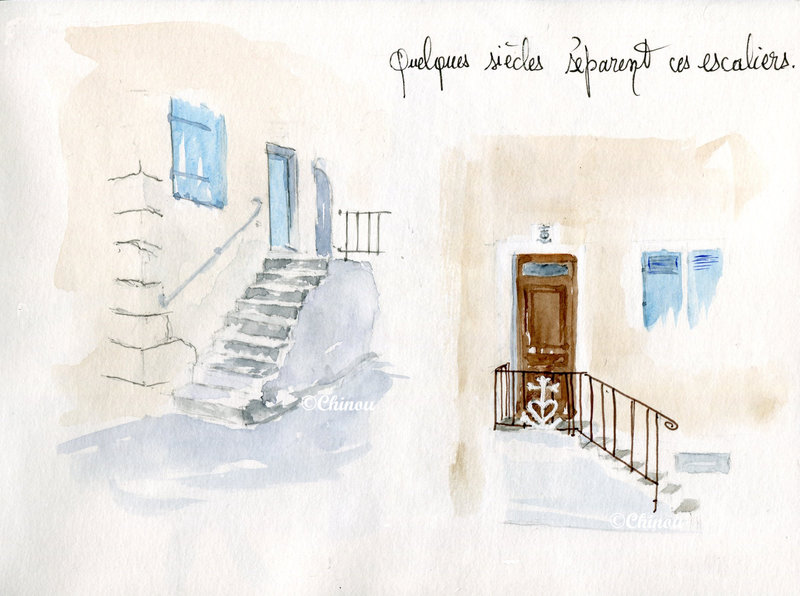 Quelques siècles séparent ces escaliers.
©Chinou
©Chinou